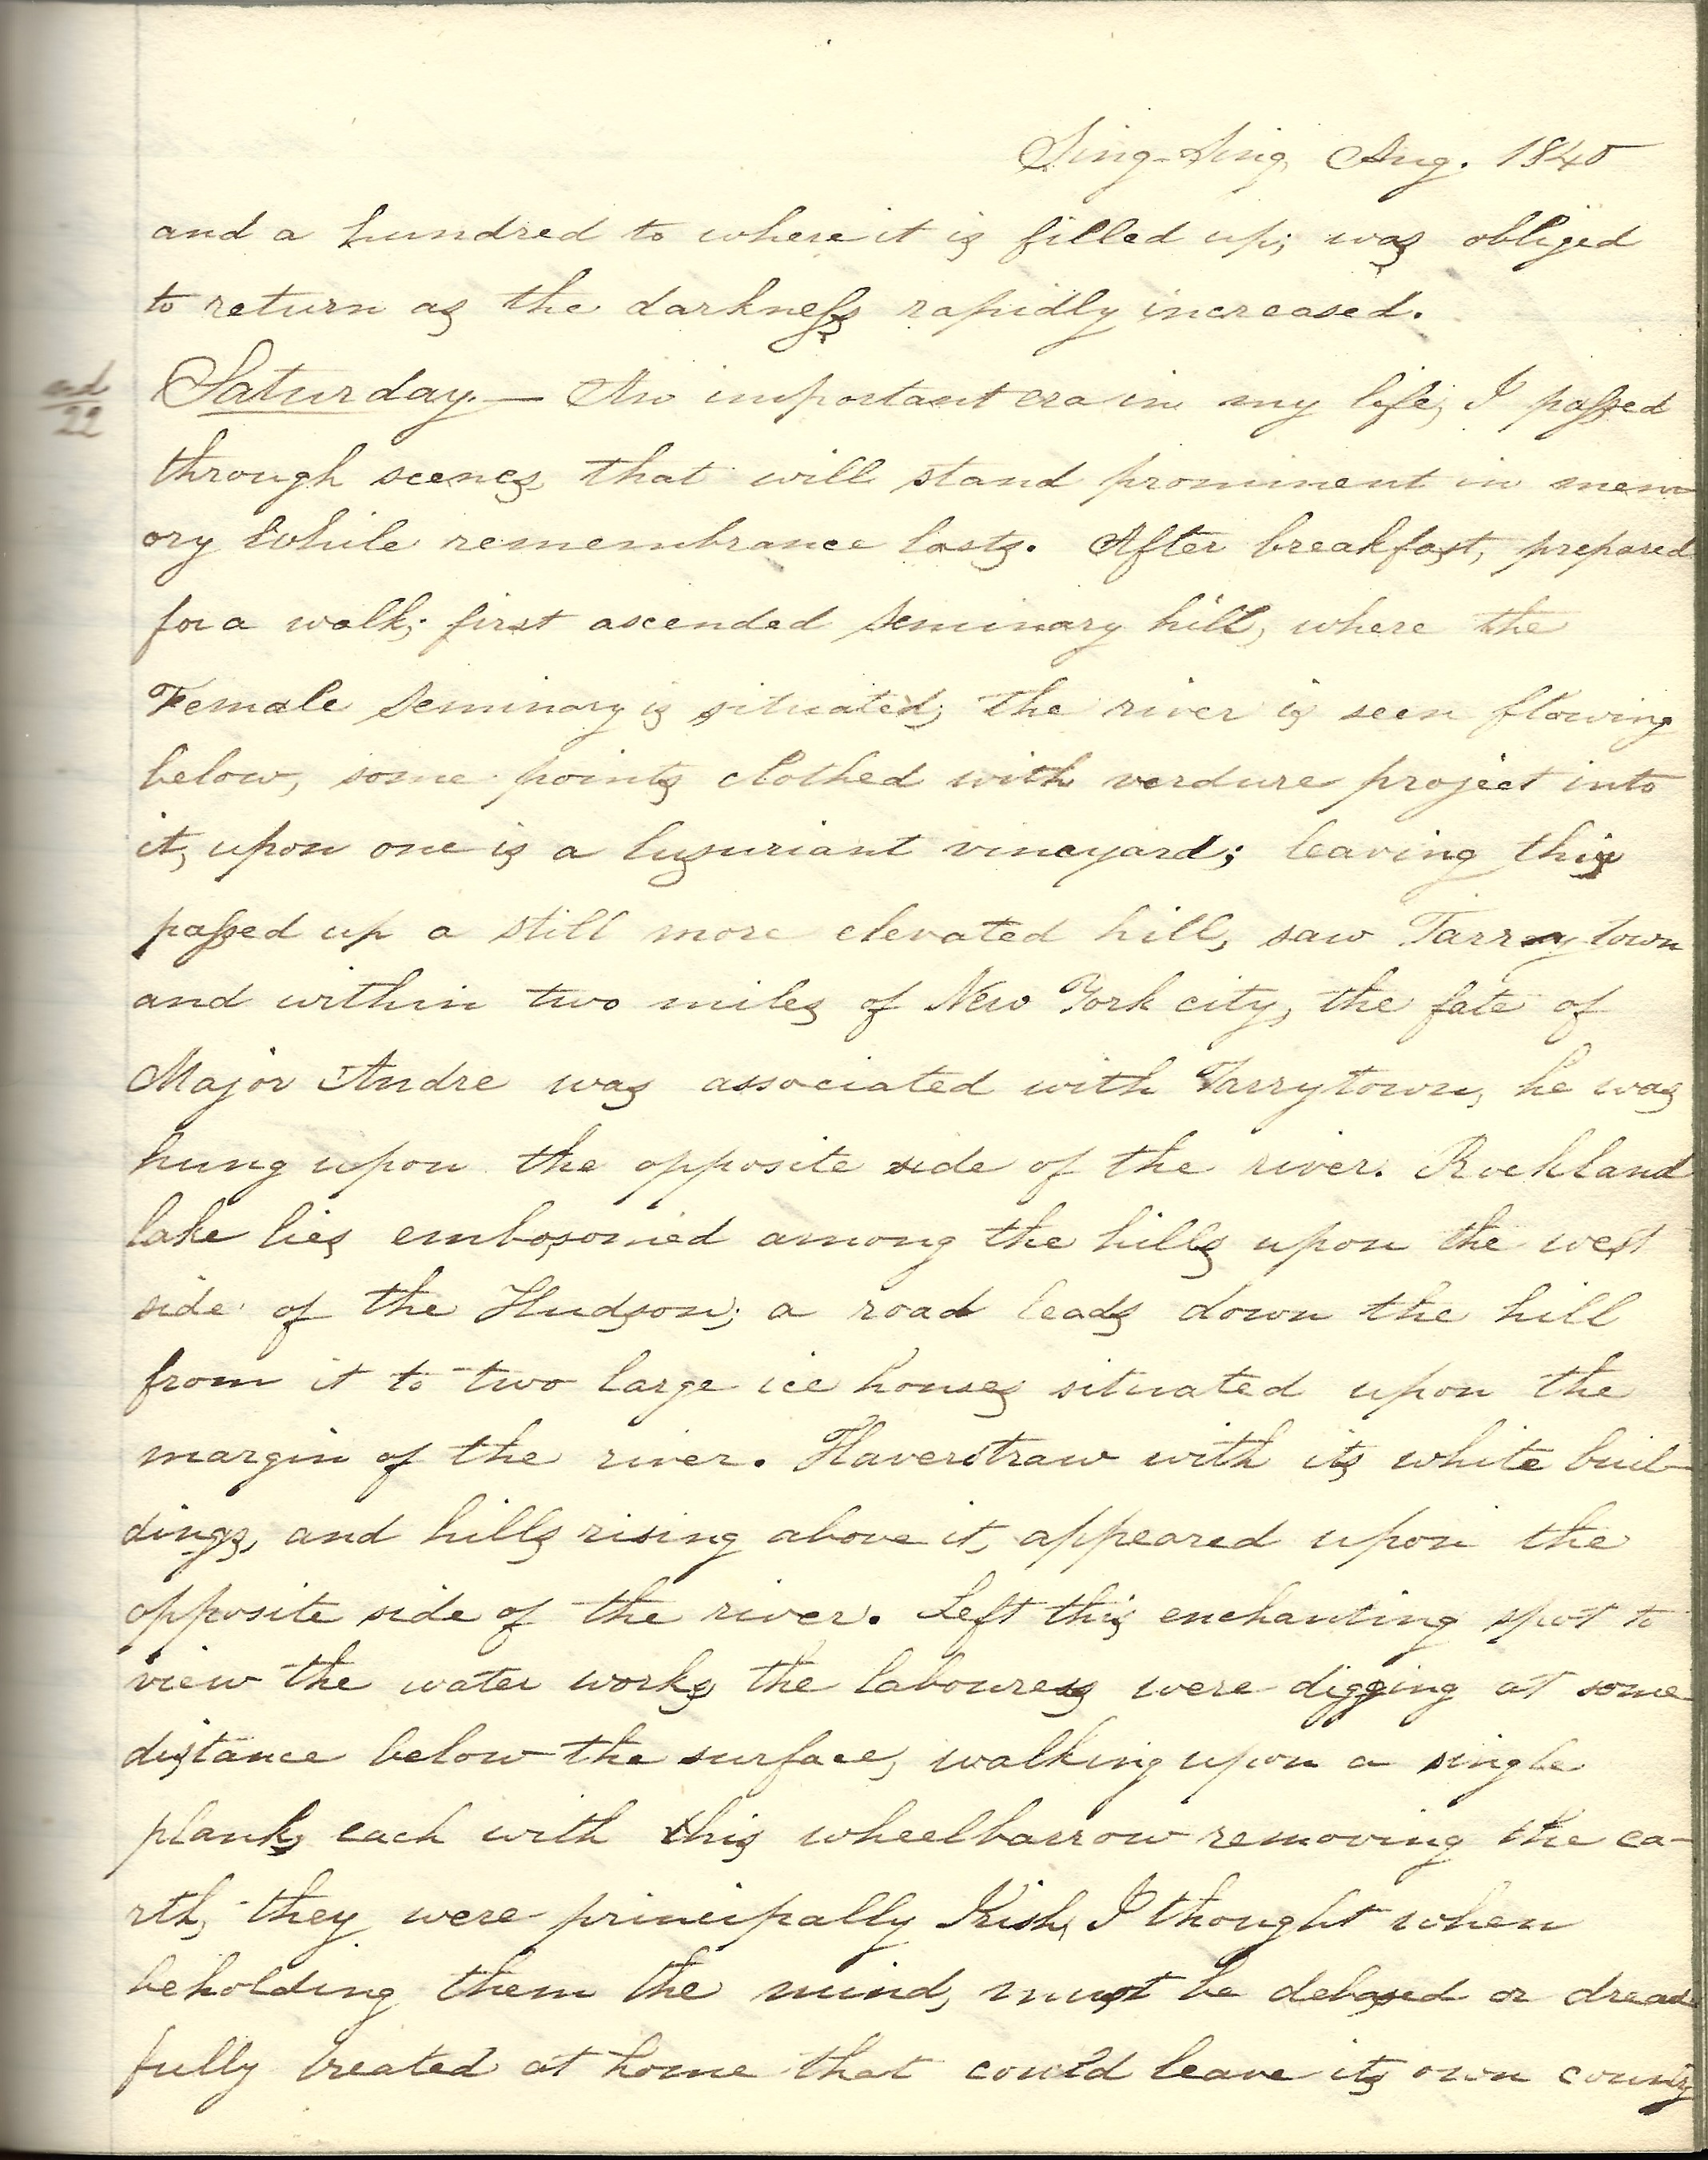 Sing-Sing, Aug. 1840
and a hundred to where it is filled up; was obliged
to return as the darkness rapidly increased.
Saturday.— An important era in my life, I passed
22
through scenes, that will stand prominent in mem
ory while remembrance lasts. After breakfast, prepared
for a walk; first ascended Seminary hill, where the
Female Seminary is situated; the river is seen flowing
below, some points clothed with verdure project into
it, upon one is a luxuriant vineyard; leaving this
passed up a still more elevated hill, saw Tarrytown
and within two miles of New York city, the fate of
Major Andre was associated with Tarrytown, he was
hung upon the opposite side of the river. Rockland
lake lies embosomed among the hills upon the west
side of the Hudson; a road leads down the hill
from it to two large ice houses situated upon the
margin of the river. Haverstraw with its white buil-
dings, and hills rising above it, appeared upon the
opposite side of the river. Left this enchanting spot to
view the water works, the labourers were digging at some
distance below the surface, walking upon a single
plank, each with his wheelbarrow removing the ea-
rth, they were principally Irish, I thought when
beholding them the mind, must be debased or dread
fully treated at home that could leave its own country